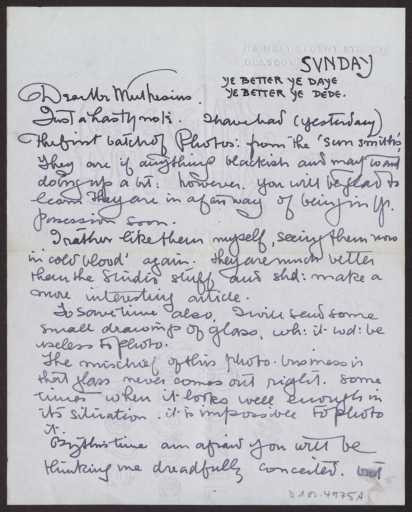 SVNDAY
YE BETTER YE DAYE
YE BETTER YE DEDE.
Dear Mr Muthesius.
Just a hasty note. I have had (yesterday)
the first batch of Photos: from the 'sun smiths'
They are if anything blackish and may want
doing up a bit: however. you will be glad to
learn they are in a fair way of being in yr.
possession soon.
I rather like them myself, seeing them now
in 'cold blood' again. They are much better
than the Studio stuff and shd: make a
more interesting article.
To save time also, I will send some
small drawings of glass, wh: it wd: be
useless to photo.
The mischief of this photo-business is
that glass never comes out right. some
times when it looks well enough in
its situation. it is impossible to photo
it.
By this time am afraid you will be
thinking me dreadfully conceited. but
D 102-4975A